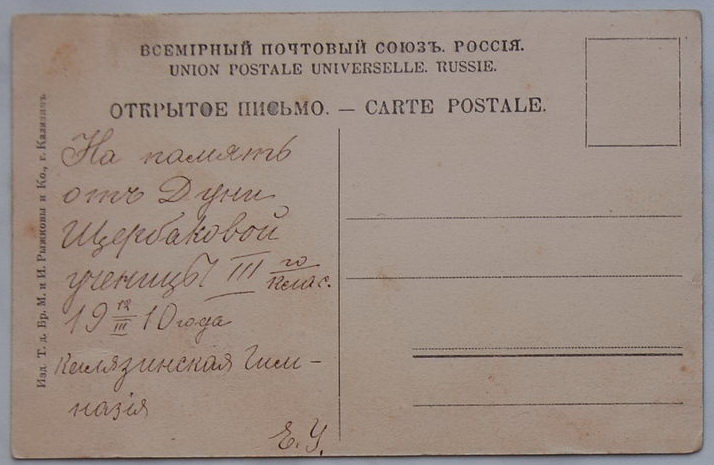 ВСЕМІРНЫЙ ПОЧТОВЫЙ СОЮЗЪ. РОССІЯ.
UNION POSTALE UNIVERSELLE. RUSSIE.
ОТКРЫТОЕ ПИСЬМО. — CARTE POSTALE.
Изд. Т. д. Бр. М. и И. Рыжковы и Ко., г. Калязинъ
На память
отъ Дуни
Щербаковой
ученицы III го клас.
19 12/III 10 года
Калязинская Гим-
назія
Е.У.